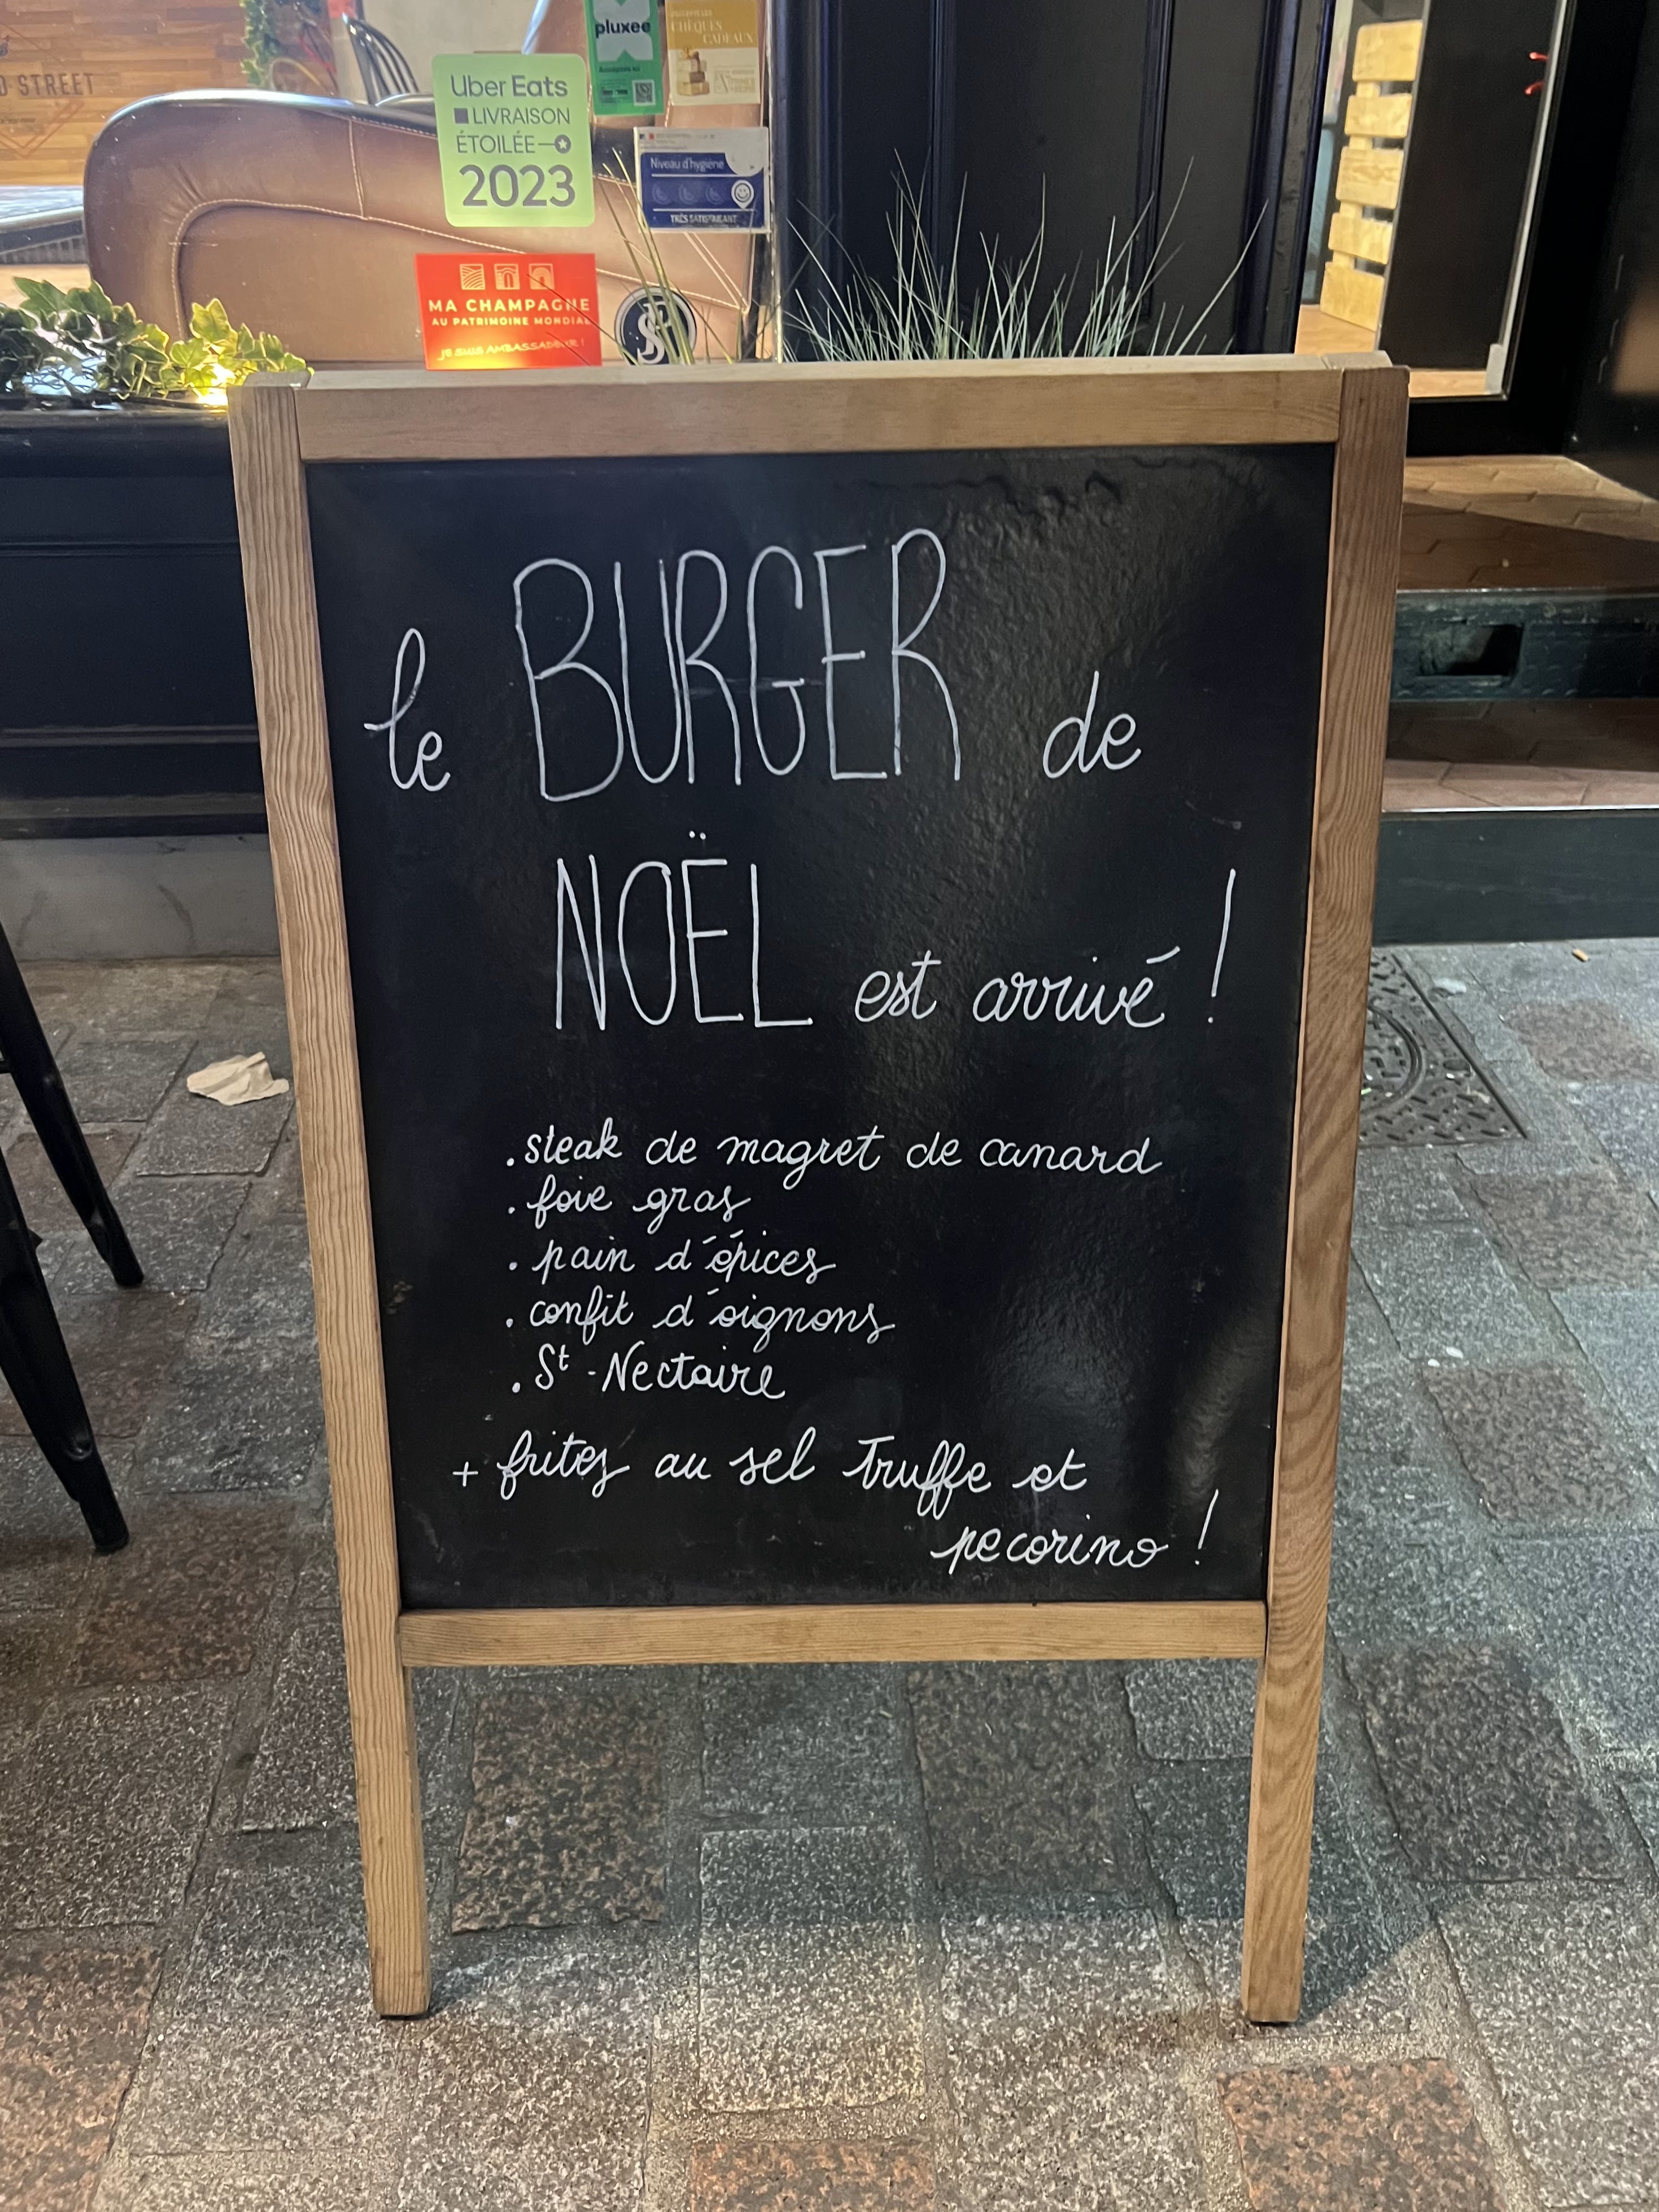 D STREET
Uber Eats
LIVRAISON
ÉTOILÉE
2023
pluxee
CHÈQUES
CADEAUX
Niveau d'hygiène
TRÈS SATISFAISANT
MA CHAMPAGNE
AU PATRIMOINE MONDIAL
JE SUIS AMBASSADEUR !
le BURGER de
NOËL est arrivé !
. steak de magret de canard
. foie gras
. pain d'épices
. confit d'oignons
. St-Nectaire
+ frites au sel truffe et
pecorino !